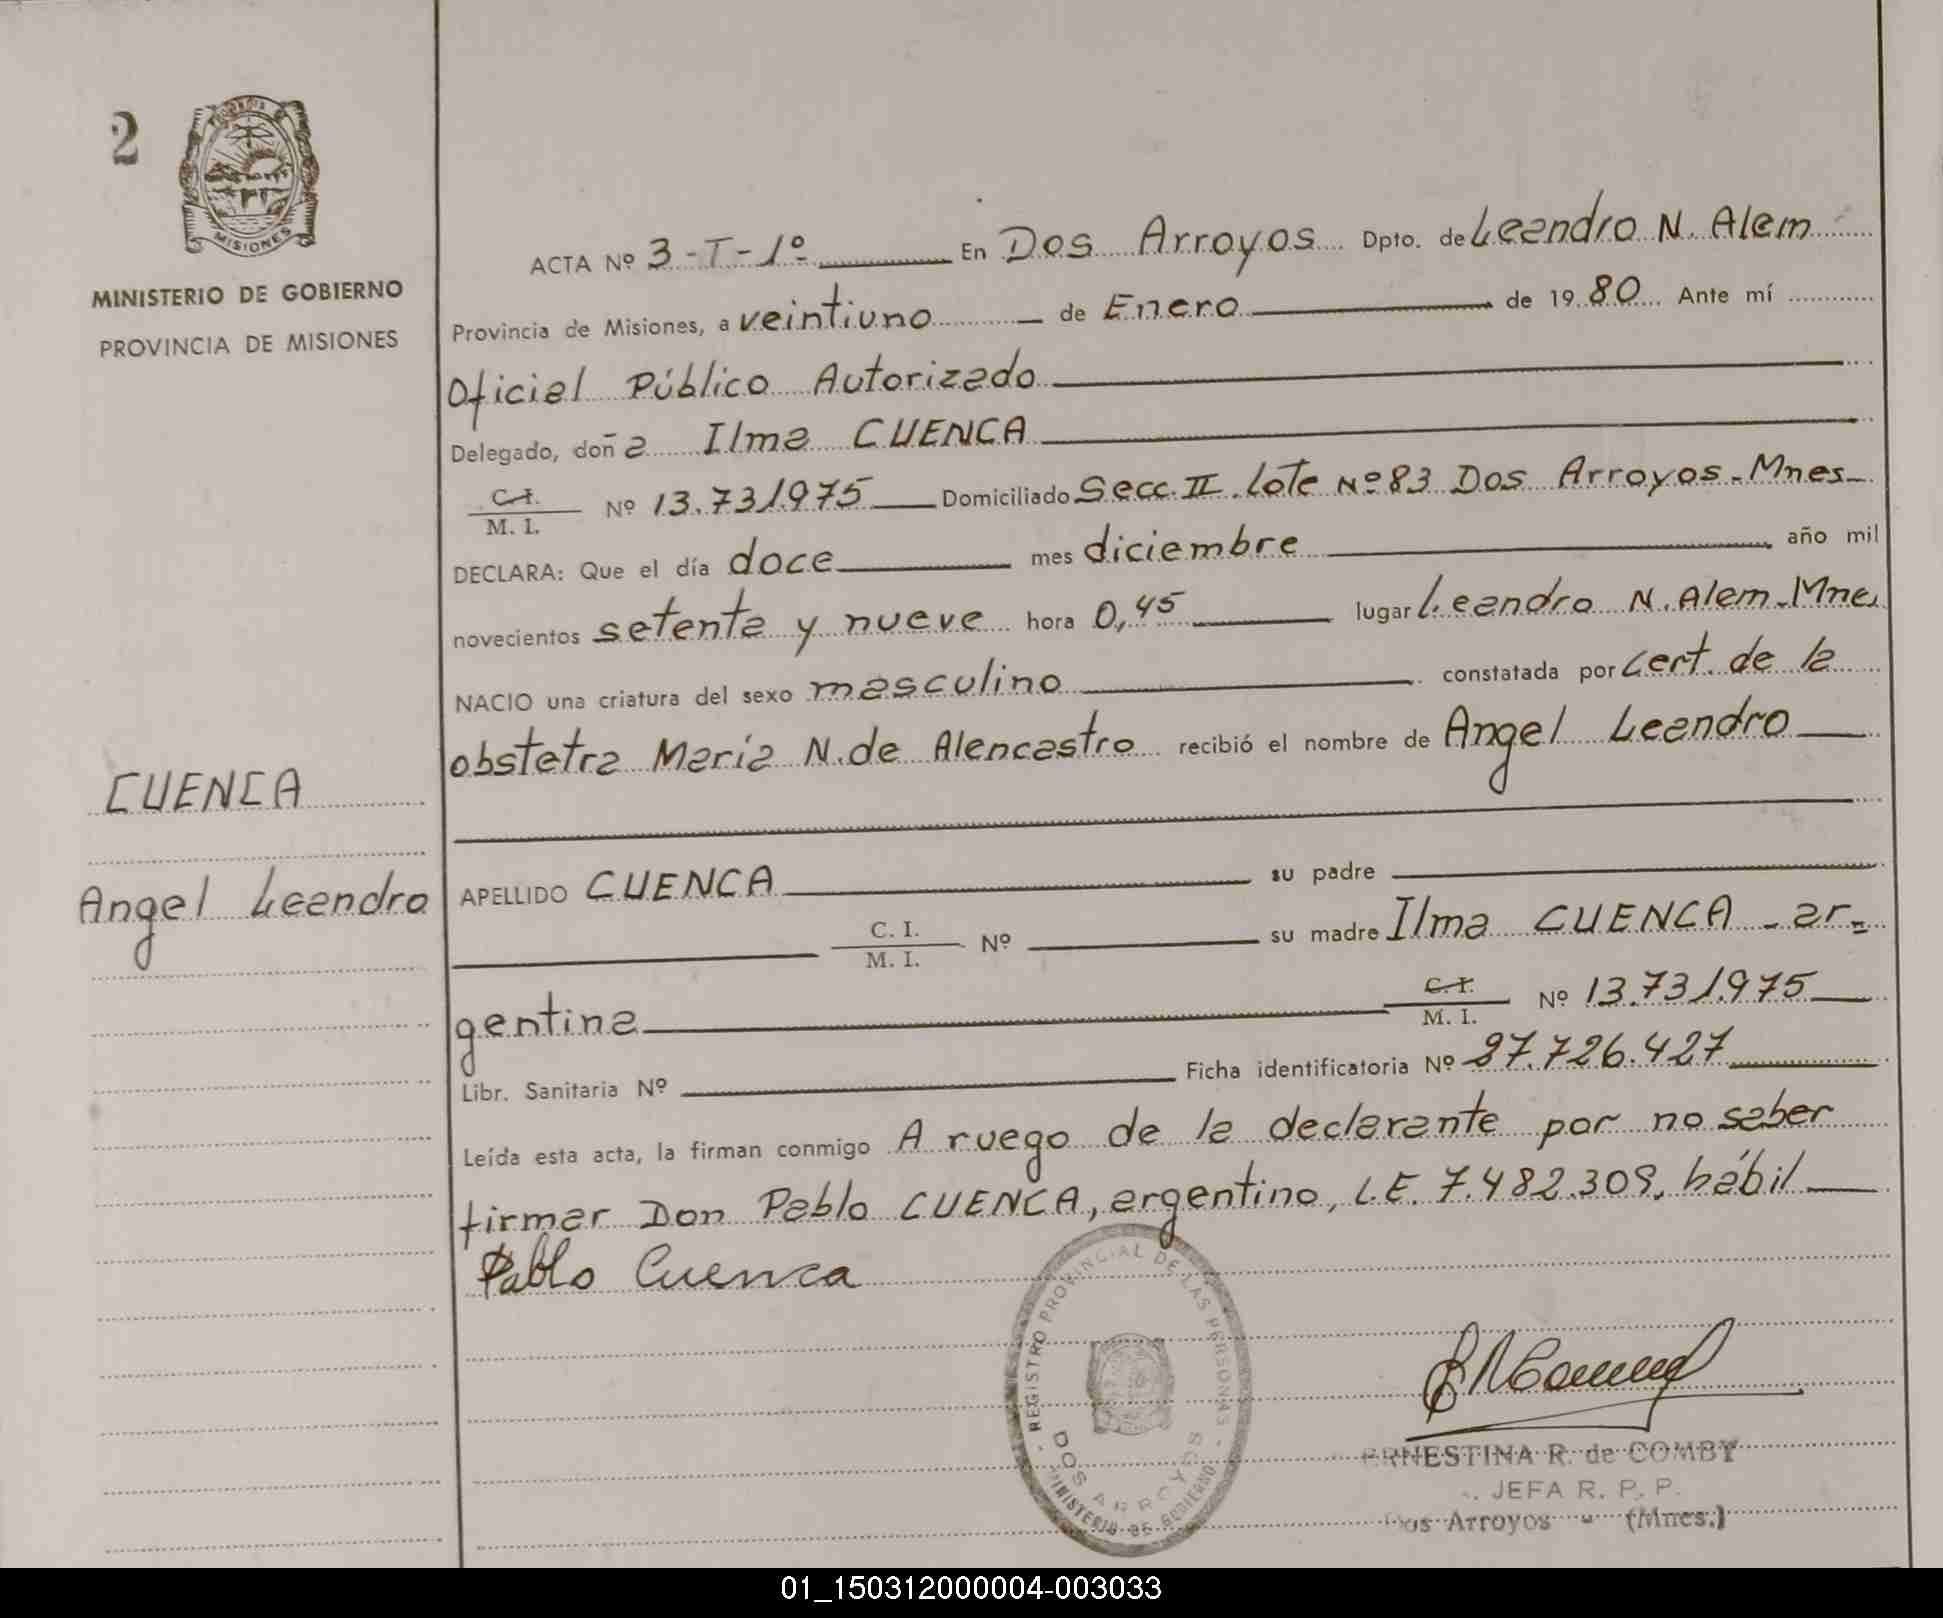 2
MISIONES
MINISTERIO DE GOBIERNO
PROVINCIA DE MISIONES
CUENCA
Angel Leandro
ACTA Nº 3-T-1º En Dos Arroyos Dpto. de Leandro N. Alem
Provincia de Misiones, a veintiuno de Enero de 1980 Ante mí
Oficial Público Autorizado
Delegado, doña Ilma CUENCA
C.I. / M. I. Nº 13.731.975 Domiciliado Secc. II. Lote Nº 83 Dos Arroyos - Mnes
DECLARA: Que el día doce mes diciembre año mil
novecientos setenta y nueve hora 0,45 lugar Leandro N. Alem-Mnes
NACIO una criatura del sexo masculino constatada por Cert. de la
obstetra María N. de Alencastro recibió el nombre de Angel Leandro
APELLIDO CUENCA su padre
C. I. / M. I. Nº su madre Ilma CUENCA - ar=
gentina C.I. / M. I. Nº 13.731.975
Libr. Sanitaria Nº Ficha identificatoria Nº 27.726.427
Leída esta acta, la firman conmigo A ruego de la declarante por no saber
firmar Don Pablo CUENCA, argentino, L.E. 7.482.309, hábil
Pablo Cuenca
REGISTRO PROVINCIAL DE LAS PERSONAS
DOS ARROYOS
MINISTERIO DE GOBIERNO
ERNESTINA R. de COMBY
JEFA R. P. P.
Dos Arroyos - (Mnes.)
01_150312000004-003033